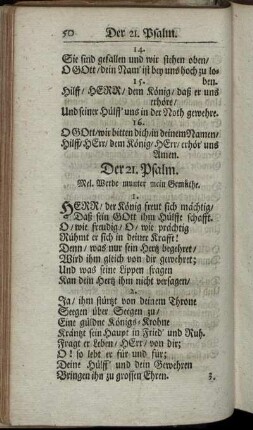 50 Der 21. Psalm.
14.
Sie sind gefallen und wir stehen oben/
O GOtt/ dein Nam' ist bey uns hoch zu lo-
ben.
15.
Hilff/ HERR/ dem König/ daß er uns
erhöre/
Und seiner Hülff' uns in der Noth gewehre.
16.
O GOtt/ wir bitten dich in deinem Namen/
Hilff/ HErr/ dem König/ HErr/ erhör' uns
Amen.
Der 21. Psalm.
Mel. Werde munter mein Gemüthe.
1.
HERR/ der König freut sich mächtig/
Daß sein GOtt ihm Hülffe schafft.
O/ wie freudig/ O/ wie prächtig
Rühmt er sich in deiner Krafft!
Denn/ was nur sein Hertz begehret/
Wird ihm gleich von dir gewehret;
Und was seine Lippen fragen
Kan dein Hertz ihm nicht versagen/
2.
Ja/ ihm stürtzt von deinem Throne
Seegen über Seegen zu/
Eine güldne Königs-Krohne
Kräntzt sein Haupt in Fried' und Ruh.
Fragt er Leben/ HErr/ von dir;
O! so lebt er für und für;
Deine Hülff' und dein Gewehren
Bringen ihn zu grossen Ehren.
3.